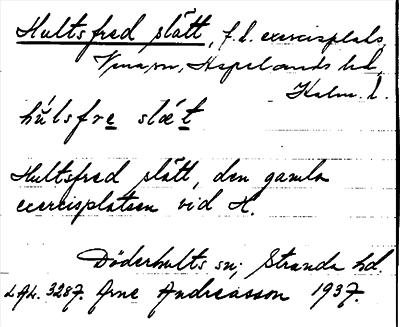 Hultsfred slätt, f.d. exercisplats,
Vena sn, Aspelands hd,
Kalm. l.
húlsfre slæ̀t
Hultsfred slätt, den gamla
exercisplatsen vid H.
Döderhults sn, Stranda hd.
LAL. 3287. Arne Andreasson 1937.